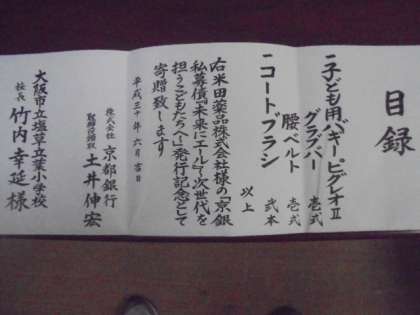 目録
一 子ども用ベギーピグレオⅡ
グラバー 壱式
腰ベルト 壱式
一 コートブラシ 弐本
以上
右米田薬品株式会社様の「京銀
私募債『未来にエール』~次世代を
担うこどもたちへ~」発行記念として
寄贈致します
平成三十年六月吉日
株式会社 京都銀行
取締役頭取 土井伸宏
大阪市立塩草立葉小学校
校長 竹内幸延様